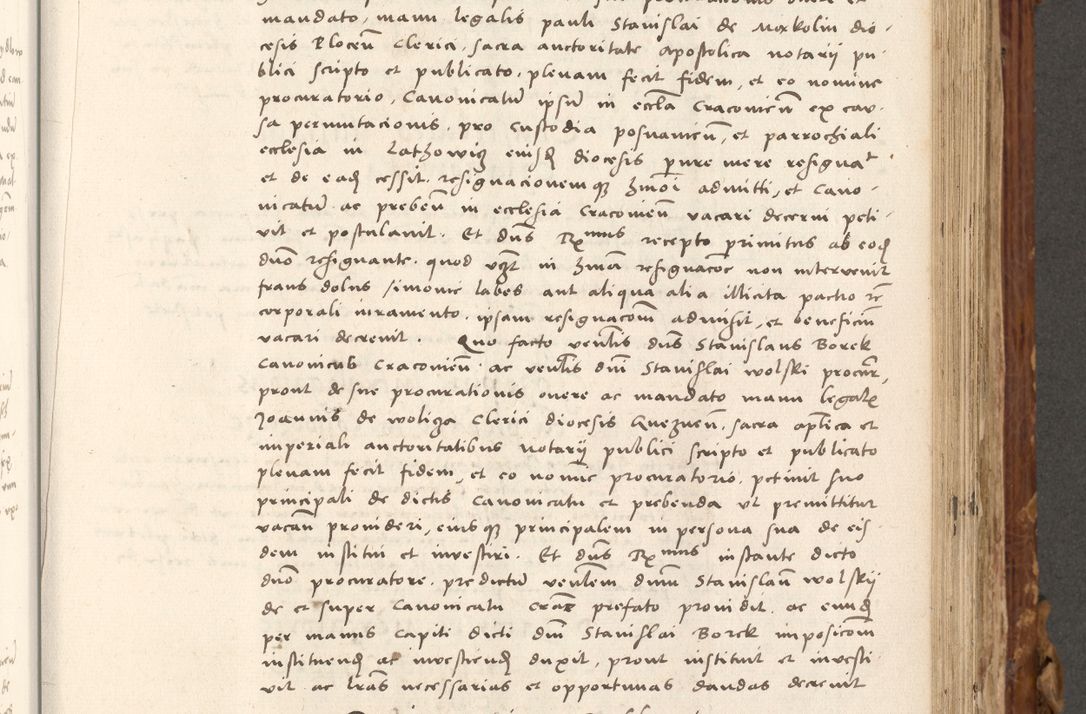 mandato, manu legalis pauli Stanislai de Morkolin dio-
cesis Plocen̄ Clerici, sacra auctoritate apostolica notarij pu-
blici scripto et publicato, plenam fecit fidem, et eo nomine
procuratorio, Canonicatū ipsū in eccl̄a Cracovien̄ ex cau-
sa permutacionis, pro Custodia posnanien̄, et parrochiali
ecclesia in Lathowicz eiusd̄ diocesis pure mere resignat
et de ead̄ cessit, resignacionemqꝫ hm̄oi admitti, et Cano-
nicatū ac preben̄ in ecclesia Cracovien̄ vacari decerni peti-
vit et postulavit. Et dn̄s Rx̄mus recepto primitus ab eod̄
dn̄o resignante, quod in hm̄oi resignacōe non intervenit
fraus dolus simonie labes aut aliqua alia illicita pactio
corporali iuramento, ipsam resignacōem admisit, et beneficiū
vacari decrevit. Quo facto ven̄lis dn̄s Stanislaus Borek
Canonicus Cracovien̄ ac ven̄lis dn̄i Stanislai Wolski procur̄,
prout de sue procurationis onere ac mandato manu legalē
Joannis de Woliza Clerici diocesis Gneznen̄, sacra ap̄lica et
imperiali auctoritatibus notarij publici scripto et publicato
plenam fecit fidem, et eo nomīe procuratorio, petivit suo
principali de dictis Canonicatu et prebenda ut premittitur
vacan̄ provideri, eiusqꝫ principalem in persona sua de eis-
dem institui et investiri. Et dn̄s Rx̄mus instante dicto
dn̄o procuratore, predictum ven̄lem dn̄m Stanislaū Wolskij
de et super Canonicatu Crac̄ prefato providit, ac eund̄
per manus Capiti dicti dn̄i Stanislai Borek imposicōm
instituend̄ ac investiend̄ duxit, prout instituit et investi-
vit ac l̄ras necessarias et opportunas dandas decrevit